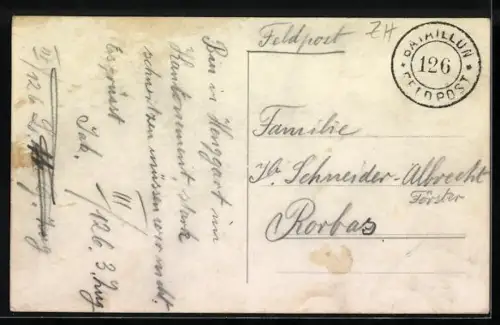 Feldpost
ZH
BATAILLON
126
FELDPOST
Familie
Hr. Schneider-Albrecht
Förster
Rorbas
Bin in Henggart im
Kantonement, stark
schwitzen müssen wir nicht.
Es grüsst
Jak.
III/126 3. Zug
IV/126